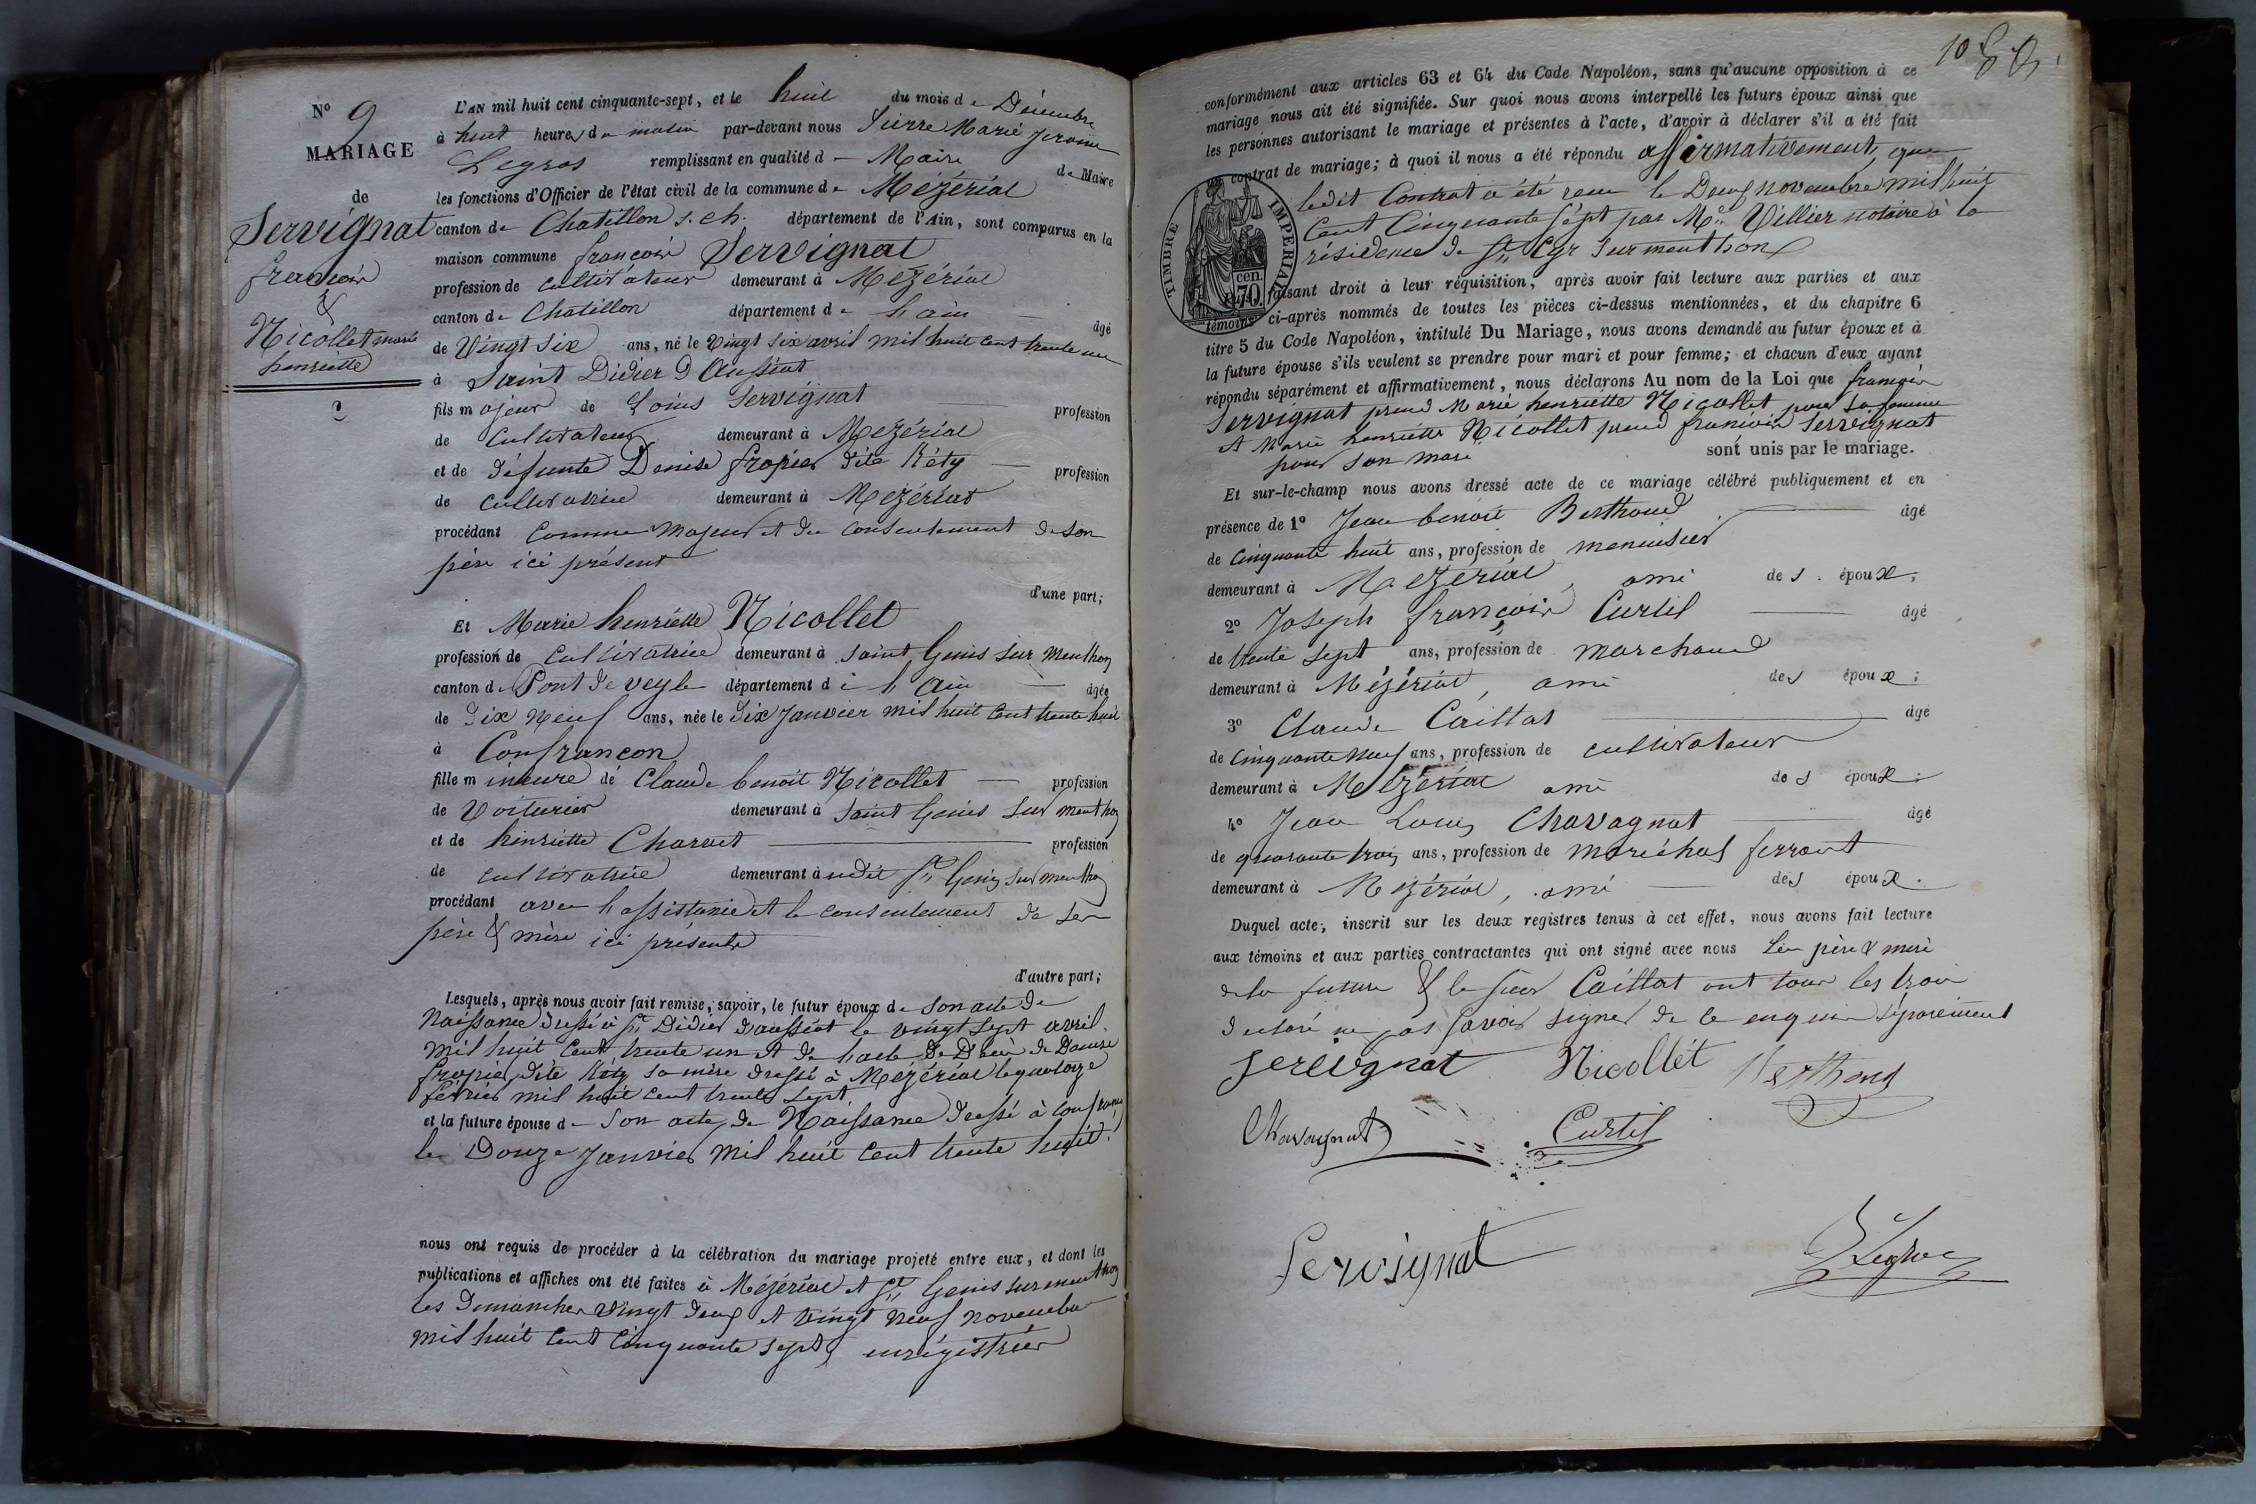 N° 9
MARIAGE
de
Servignat
françois
&
Nicollet marie
henriette
L'AN mil huit cent cinquante-sept, et le huit du mois de Décembre
à huit heures du matin par-devant nous Pierre Marie Jerome
Legros remplissant en qualité de Maire de Maire
les fonctions d'Officier de l'état civil de la commune de Mézériat
canton de Chatillon s. ch. département de l'Ain, sont comparus en la
maison commune françois Servignat
profession de cultivateur demeurant à Mezériat
canton de Chatillon département de l'ain âgé
de Vingt six ans, né le Vingt six avril mil huit cent trente un
à Saint Didier D'Aussiat
fils majeur de Louis Servignat profession
de Cultivateur demeurant à Mezériat
et de défunte Denise fropier dite Réty profession
de cultivatrice demeurant à Mezériat
procédant comme majeur et du consentement de son
père ici présent
d'une part;
Et Marie henriette Nicollet
profession de Cultivatrice demeurant à Saint Genis sur Menthon
canton de Pont de veyle département de l'Ain âgée
de Dix Neuf ans, née le Dix Janvier mil huit cent trente huit
à Confrançon
fille mineure de Claude benoit Nicollet profession
de Voiturier demeurant à Saint Genis sur menthon
et de henriette Charvet profession
de cultivatrice demeurant à udit St Genis sur menthon
procédant avec l'assistance et le consentement de ses
père & mère ici présents
d'autre part;
Lesquels, après nous avoir fait remise, savoir, le futur époux de son acte de
Naissance dressé à St Didier d'aussiat le vingt sept avril
mil huit cent trente un et de l'acte de Décès de Denise
fropier dite Réty sa mère dressé à Mézériat le quatorze
février mil huit cent trente sept
et la future épouse de son acte de Naissance dressé à Confrançon
le Douze Janvier mil huit cent trente huit.
nous ont requis de procéder à la célébration du mariage projeté entre eux, et dont les
publications et affiches ont été faites à Mézériat et St Genis sur menthon
les Dimanches Vingt deux et vingt neuf novembre
mil huit cent cinquante sept, enrégistrées
10
conformément aux articles 63 et 64 du Code Napoléon, sans qu'aucune opposition à ce
mariage nous ait été signifiée. Sur quoi nous avons interpellé les futurs époux ainsi que
les personnes autorisant le mariage et présentes à l'acte, d'avoir à déclarer s'il a été fait
un contrat de mariage; à quoi il nous a été répondu affirmativement, que
ledit Contrat a été recu le Deux novembre mil huit
Cent Cinquante sept par Me Villier notaire à la
résidence de St Cyr sur menthon
TIMBRE IMPERIAL
70 cen.
faisant droit à leur réquisition, après avoir fait lecture aux parties et aux
témoins ci-après nommés de toutes les pièces ci-dessus mentionnées, et du chapitre 6
titre 5 du Code Napoléon, intitulé Du Mariage, nous avons demandé au futur époux et à
la future épouse s'ils veulent se prendre pour mari et pour femme; et chacun d'eux ayant
répondu séparément et affirmativement, nous déclarons Au nom de la Loi que françois
Servignat prend Marie henriette Nicollet pour sa femme
et Marie henriette Nicollet prend françois Servignat
pour son mari sont unis par le mariage.
Et sur-le-champ nous avons dressé acte de ce mariage célébré publiquement et en
présence de 1° Jean benoit Berthoud âgé
de Cinquante huit ans, profession de menuisier
demeurant à Mezériat, ami des époux;
2° Joseph françois Curtil âgé
de trente sept ans, profession de marchand
demeurant à Mézériat, ami des époux;
3° Claude Caillat âgé
de Cinquante neuf ans, profession de cultivateur
demeurant à Mezériat ami des époux;
4° Jean Louis Chavagnat âgé
de quarante trois ans, profession de maréchal ferrant
demeurant à Mezériat, ami des époux.
Duquel acte, inscrit sur les deux registres tenus à cet effet, nous avons fait lecture
aux témoins et aux parties contractantes qui ont signé avec nous Les père & mère
de la future & le sieur Caillat ont tous les trois
declaré ne pas savoir signer de ce enquis séparément
Servignat Nicollét Berthoud
Chavagnat Curtil
Servignat Legros